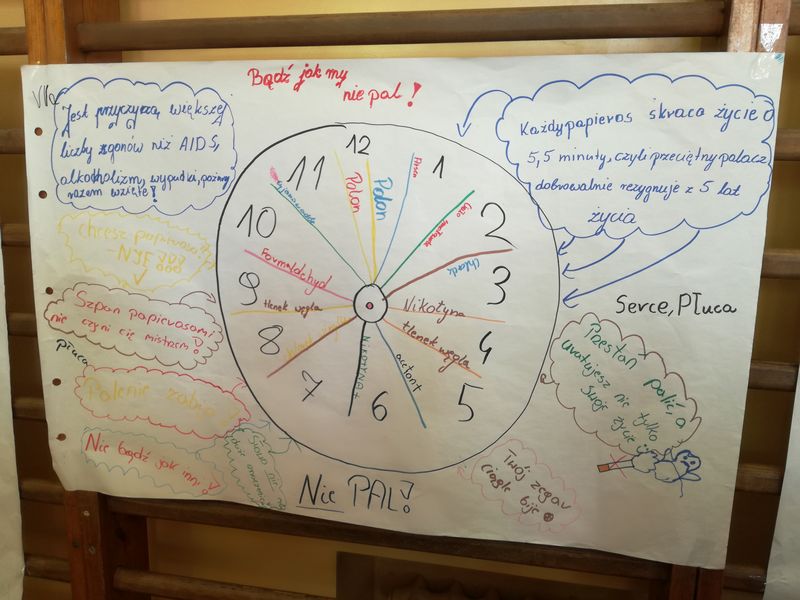 Bądź jak my
nie pal!
VIIa
Jest przyczyzą większej
liczby zgonów niż AIDS,
alkocholizm, wypadki, pożary
razem wzięte!
Każdy papieros skraca życie o
5,5 minuty, czyli przeciętny palacz
dobrowalnie rezygnuje z 5 lat
życia
chcesz papierosa?!
-NIE!!!
Szpan papierosami
nie czyni cię mistrzem!
Płuca
Palenie zabija!
Nie bądź jak inni!
12
1
2
3
4
5
6
7
8
9
10
11
Polon
Polon
Chlorek
Nikotyna
tlenek węgla
acetont
Nikotyna
tlenek węgla
Formaldehyd
Serce, Płuca
Przestań palić, a
uratujesz nie tylko
swoje życie
Twój zegar
ciągle bije
Nie PAL!